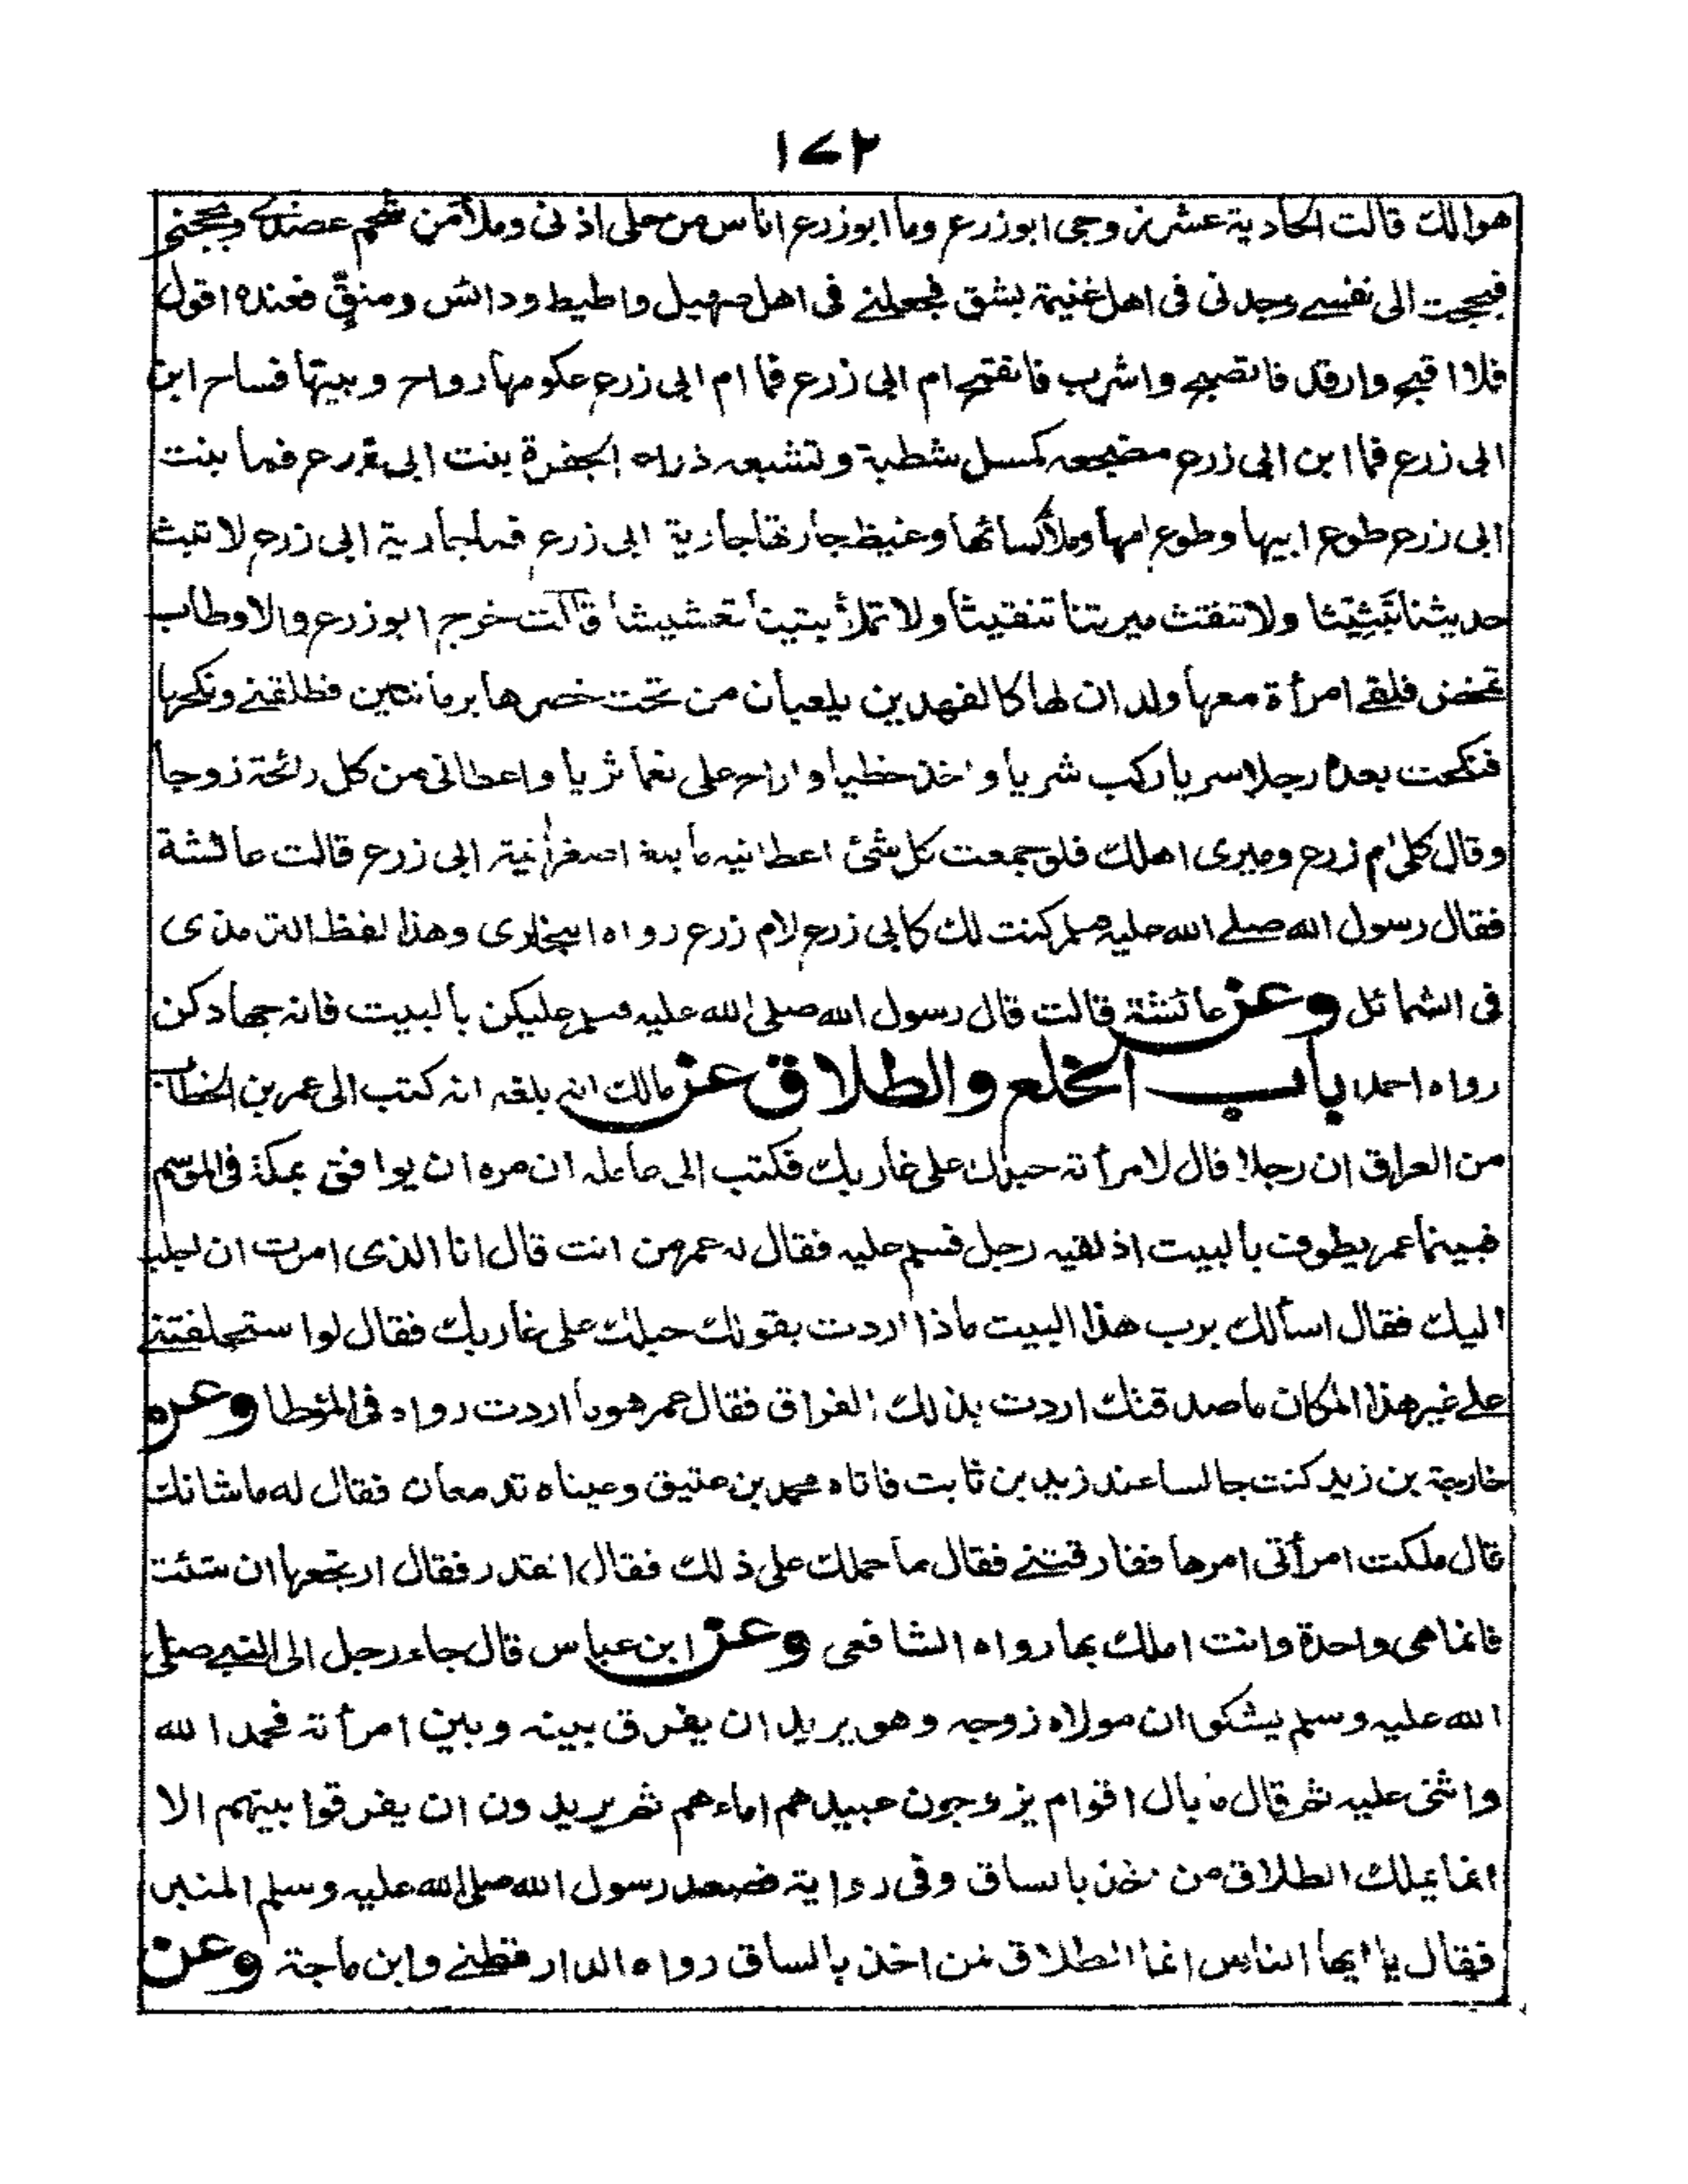 ١٧٢
هوالك قالت الحادية عشر زوجى ابوزرع وما ابوزرع اناس من حلى اذنى وملأ من شحم عضدى وبجحنى
فبجحت الى نفسے وجدنى فى اهل غنيمة بشق فجعلنے فى اهل صهيل واطيط ودائس ومنقٍّ فعنده اقول
فلا اقبح وارقد فاتصبح واشرب فاتقمح ام ابى زرع فما ام ابى زرع عكومها رواح وبيتها فساح ابن
ابى زرع فما ابن ابى زرع مضجعه كمسل شطبة وتشبعه ذراع الجفرة بنت ابى زرع فما بنت
ابى زرع طوع ابيها وطوع امها وملأ كسائها وغيظ جارتها جارية ابى زرع فما جارية ابى زرع لا تبث
حديثنا تَبثِيثا ولا تنقث ميرتنا تنقيثا ولا تملأ بيتنا تعشيشا قالت خرج ابوزرع والاوطاب
تمخض فلقے امرأة معها ولدان لها كالفهدين يلعبان من تحت خصرها برمانتين فطلقنے ونكحها
فنكحت بعده رجلا سريا ركب شريا واخذ خطيا واراح على نعما ثريا واعطانى من كل رائحة زوجا
وقال كلى ام زرع وميرى اهلك فلو جمعت كل شئ اعطانيه ما بلغ اصغر انية ابى زرع قالت عائشة
فقال رسول الله صلے الله عليه وسلم كنت لك كابى زرع لام زرع رواه البخارى وهذا لفظ الترمذى
فى الشمائل وعن عائشة قالت قال رسول الله صلى الله عليه وسلم عليكن بالبيت فانه جهادكن
رواه احمد باب الخلع والطلاق عن مالك انه بلغه انه كتب الى عمر بن الخطاب
من العراق ان رجلا قال لامرأته حبلك على غاربك فكتب الى عامله ان مره ان يوافق بمكة فى الموسم
فبينما عمر يطوف بالبيت اذ لقيه رجل فسلم عليه فقال له عمر من انت قال انا الذى امرت ان يجلب
اليك فقال اسألك برب هذا البيت ماذا اردت بقولك حبلك على غاربك فقال لو استحلفتنے
علے غير هذا المكان ما صدقتك اردت بذلك الفراق فقال عمر هو ما اردت رواه فى المؤطا وعن
خارجة بن زيد كنت جالسا عند زيد بن ثابت فاتاه محمد بن عتيق وعيناه تدمعان فقال له ما شانك
قال ملكت امرأتى امرها ففارقتنے فقال ما حملك على ذلك فقال القدر فقال ارتجعها ان شئت
فانما هى واحدة وانت املك بها رواه الشافعى وعن ابن عباس قال جاء رجل الى النبے صلى
الله عليه وسلم يشكو ان مولاه زوجه وهو يريد ان يفرق بينه وبين امرأته فحمد الله
واثنى عليه ثم قال ما بال اقوام يزوجون عبيدهم اماءهم ثم يريدون ان يفرقوا بينهم الا
انما يملك الطلاق من اخذ بالساق وفى رواية فصعد رسول الله صلى الله عليه وسلم المنبر
فقال يا ايها الناس انما الطلاق لمن اخذ بالساق رواه الدارقطنے وابن ماجة وعن